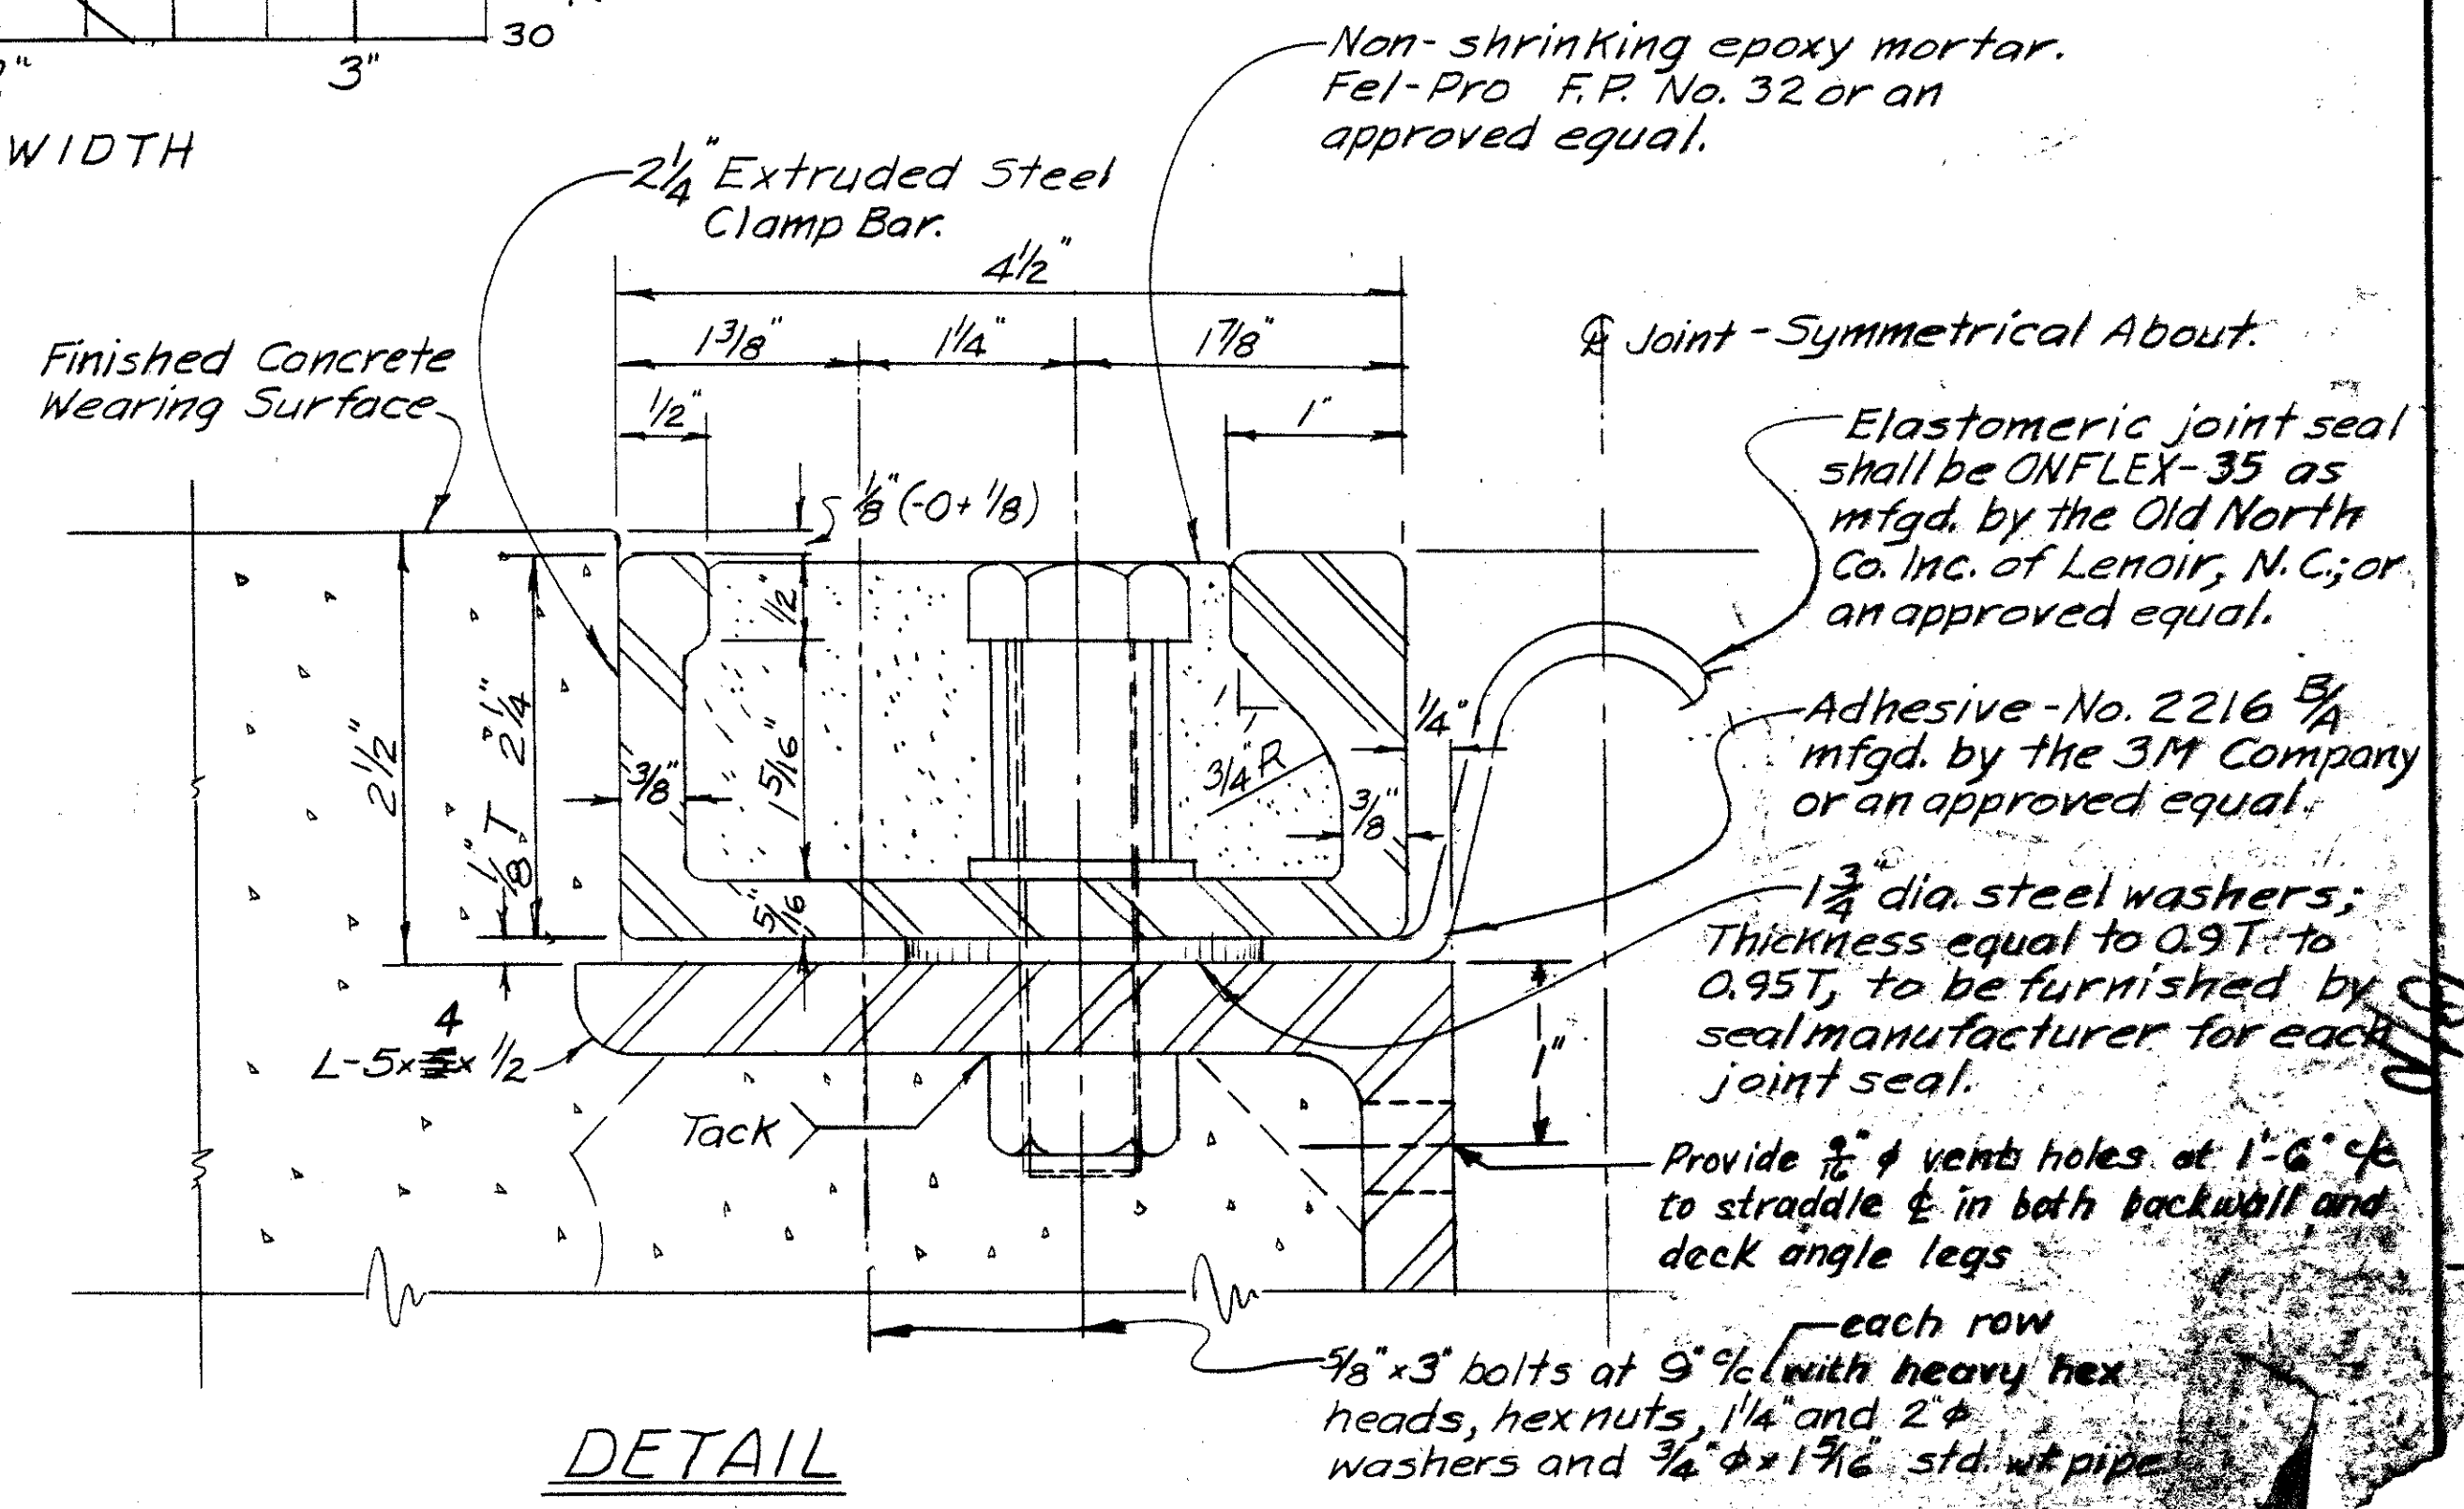 30
3"
WIDTH
Non-shrinking epoxy mortar.
Fel-Pro F.P. No. 32 or an
approved equal.
2 1/4" Extruded Steel
Clamp Bar.
4 1/2"
1 3/8" 1 1/4" 1 7/8"
1/2" 1"
℄ Joint - Symmetrical About.
Finished Concrete
Wearing Surface
1/8" (-0 + 1/8)
Elastomeric joint seal
shall be ONFLEX-35 as
mfgd. by the Old North
Co. Inc. of Lenoir, N.C.; or
an approved equal.
1/2"
2 1/2"
2 1/4"
1/8" T
3/8"
1 5/16"
5/16"
1
3/4" R
3/8"
1/4"
Adhesive - No. 2216 B/A
mfgd. by the 3M Company
or an approved equal.
1 3/4" dia. steel washers;
Thickness equal to 0.9T to
0.95T, to be furnished by
seal manufacturer for each
joint seal.
1"
4
L-5x5x 1/2
Tack
Provide 9/16" ϕ vent holes at 1'-6" c/c
to straddle ℄ in both backwall and
deck angle legs
each row
5/8" x 3" bolts at 9" c/c with heavy hex
heads, hex nuts, 1 1/4" and 2" ϕ
washers and 3/4" ϕ x 1 5/16" std. wt pipe
DETAIL